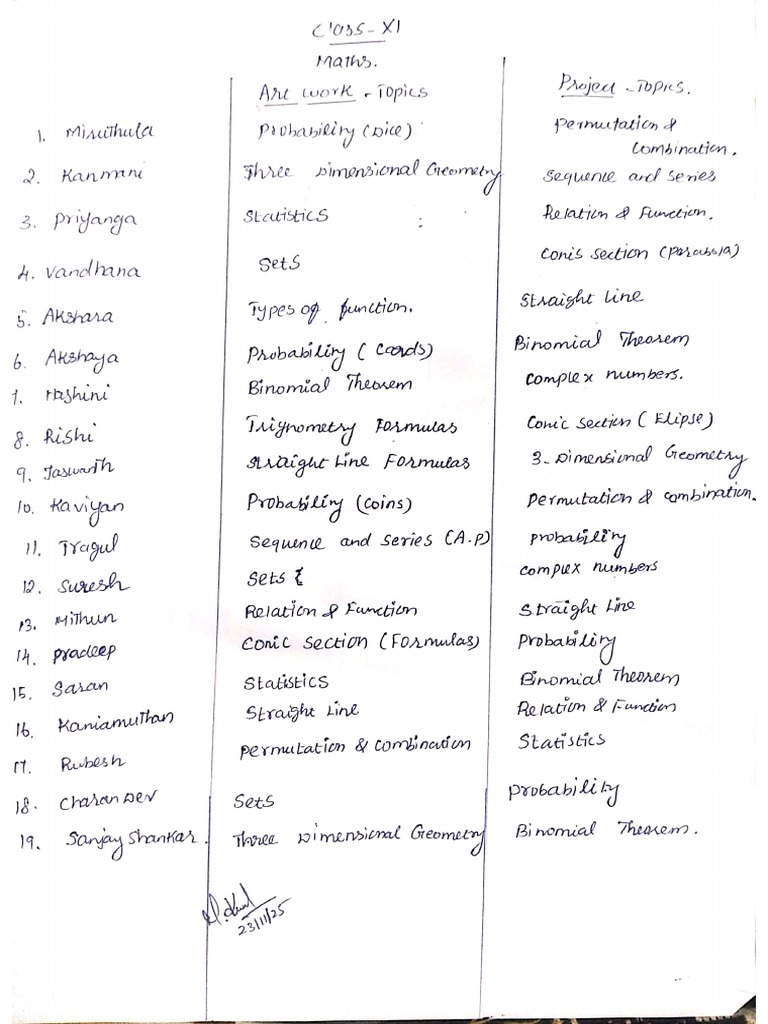 Class - XI
Maths.
Art work - Topics Project - Topics.
1. Miruthula Probability (Dice) Permutation & Combination.
2. Kanmani Three Dimensional Geometry Sequence and Series
3. Priyanga Statistics : Relation & Function.
4. Vandhana Sets Conic Section (Parabola)
5. Akshara Types of function. Straight Line
6. Akshaya Probability (Cards) Binomial Theorem
7. Hashini Binomial Theorem Complex numbers.
8. Rishi Trignometry Formulas Conic Section (Elipse)
9. Jaswarth Straight Line Formulas 3-Dimensional Geometry
10. Kaviyan Probability (coins) Permutation & Combination.
11. Tragul Sequence and Series (A.P) Probability
12. Suresh Sets Complex numbers
13. Mithun Relation & Function Straight Line
14. Pradeep Conic Section (Formulas) Probability
15. Saran Statistics Binomial Theorem
16. Kaniamuthan Straight Line Relation & Function
17. Rubesh Permutation & Combination Statistics
18. Charan Dev Sets Probability
19. Sanjay Shankar. Three Dimensional Geometry Binomial Theorem.
23/11/25